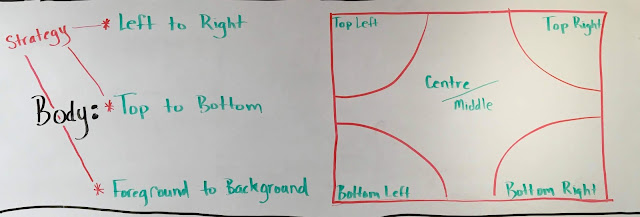 Strategy
* Left to Right
Body:
* Top to Bottom
* Foreground to Background
Top Left
Top Right
Centre/
Middle
Bottom Left
Bottom Right